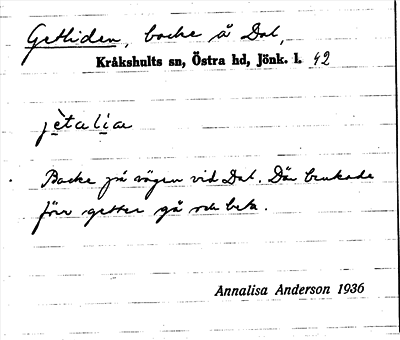 Getliden, backe å Dal,
Kråkshults sn, Östra hd, Jönk. l. 42
jètalía
Backe på vägen vid Dal. Där brukade
förr getter gå och beta.
Annalisa Anderson 1936